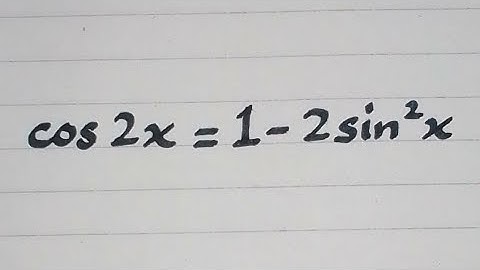 cos 2x = 1 - 2sin²x